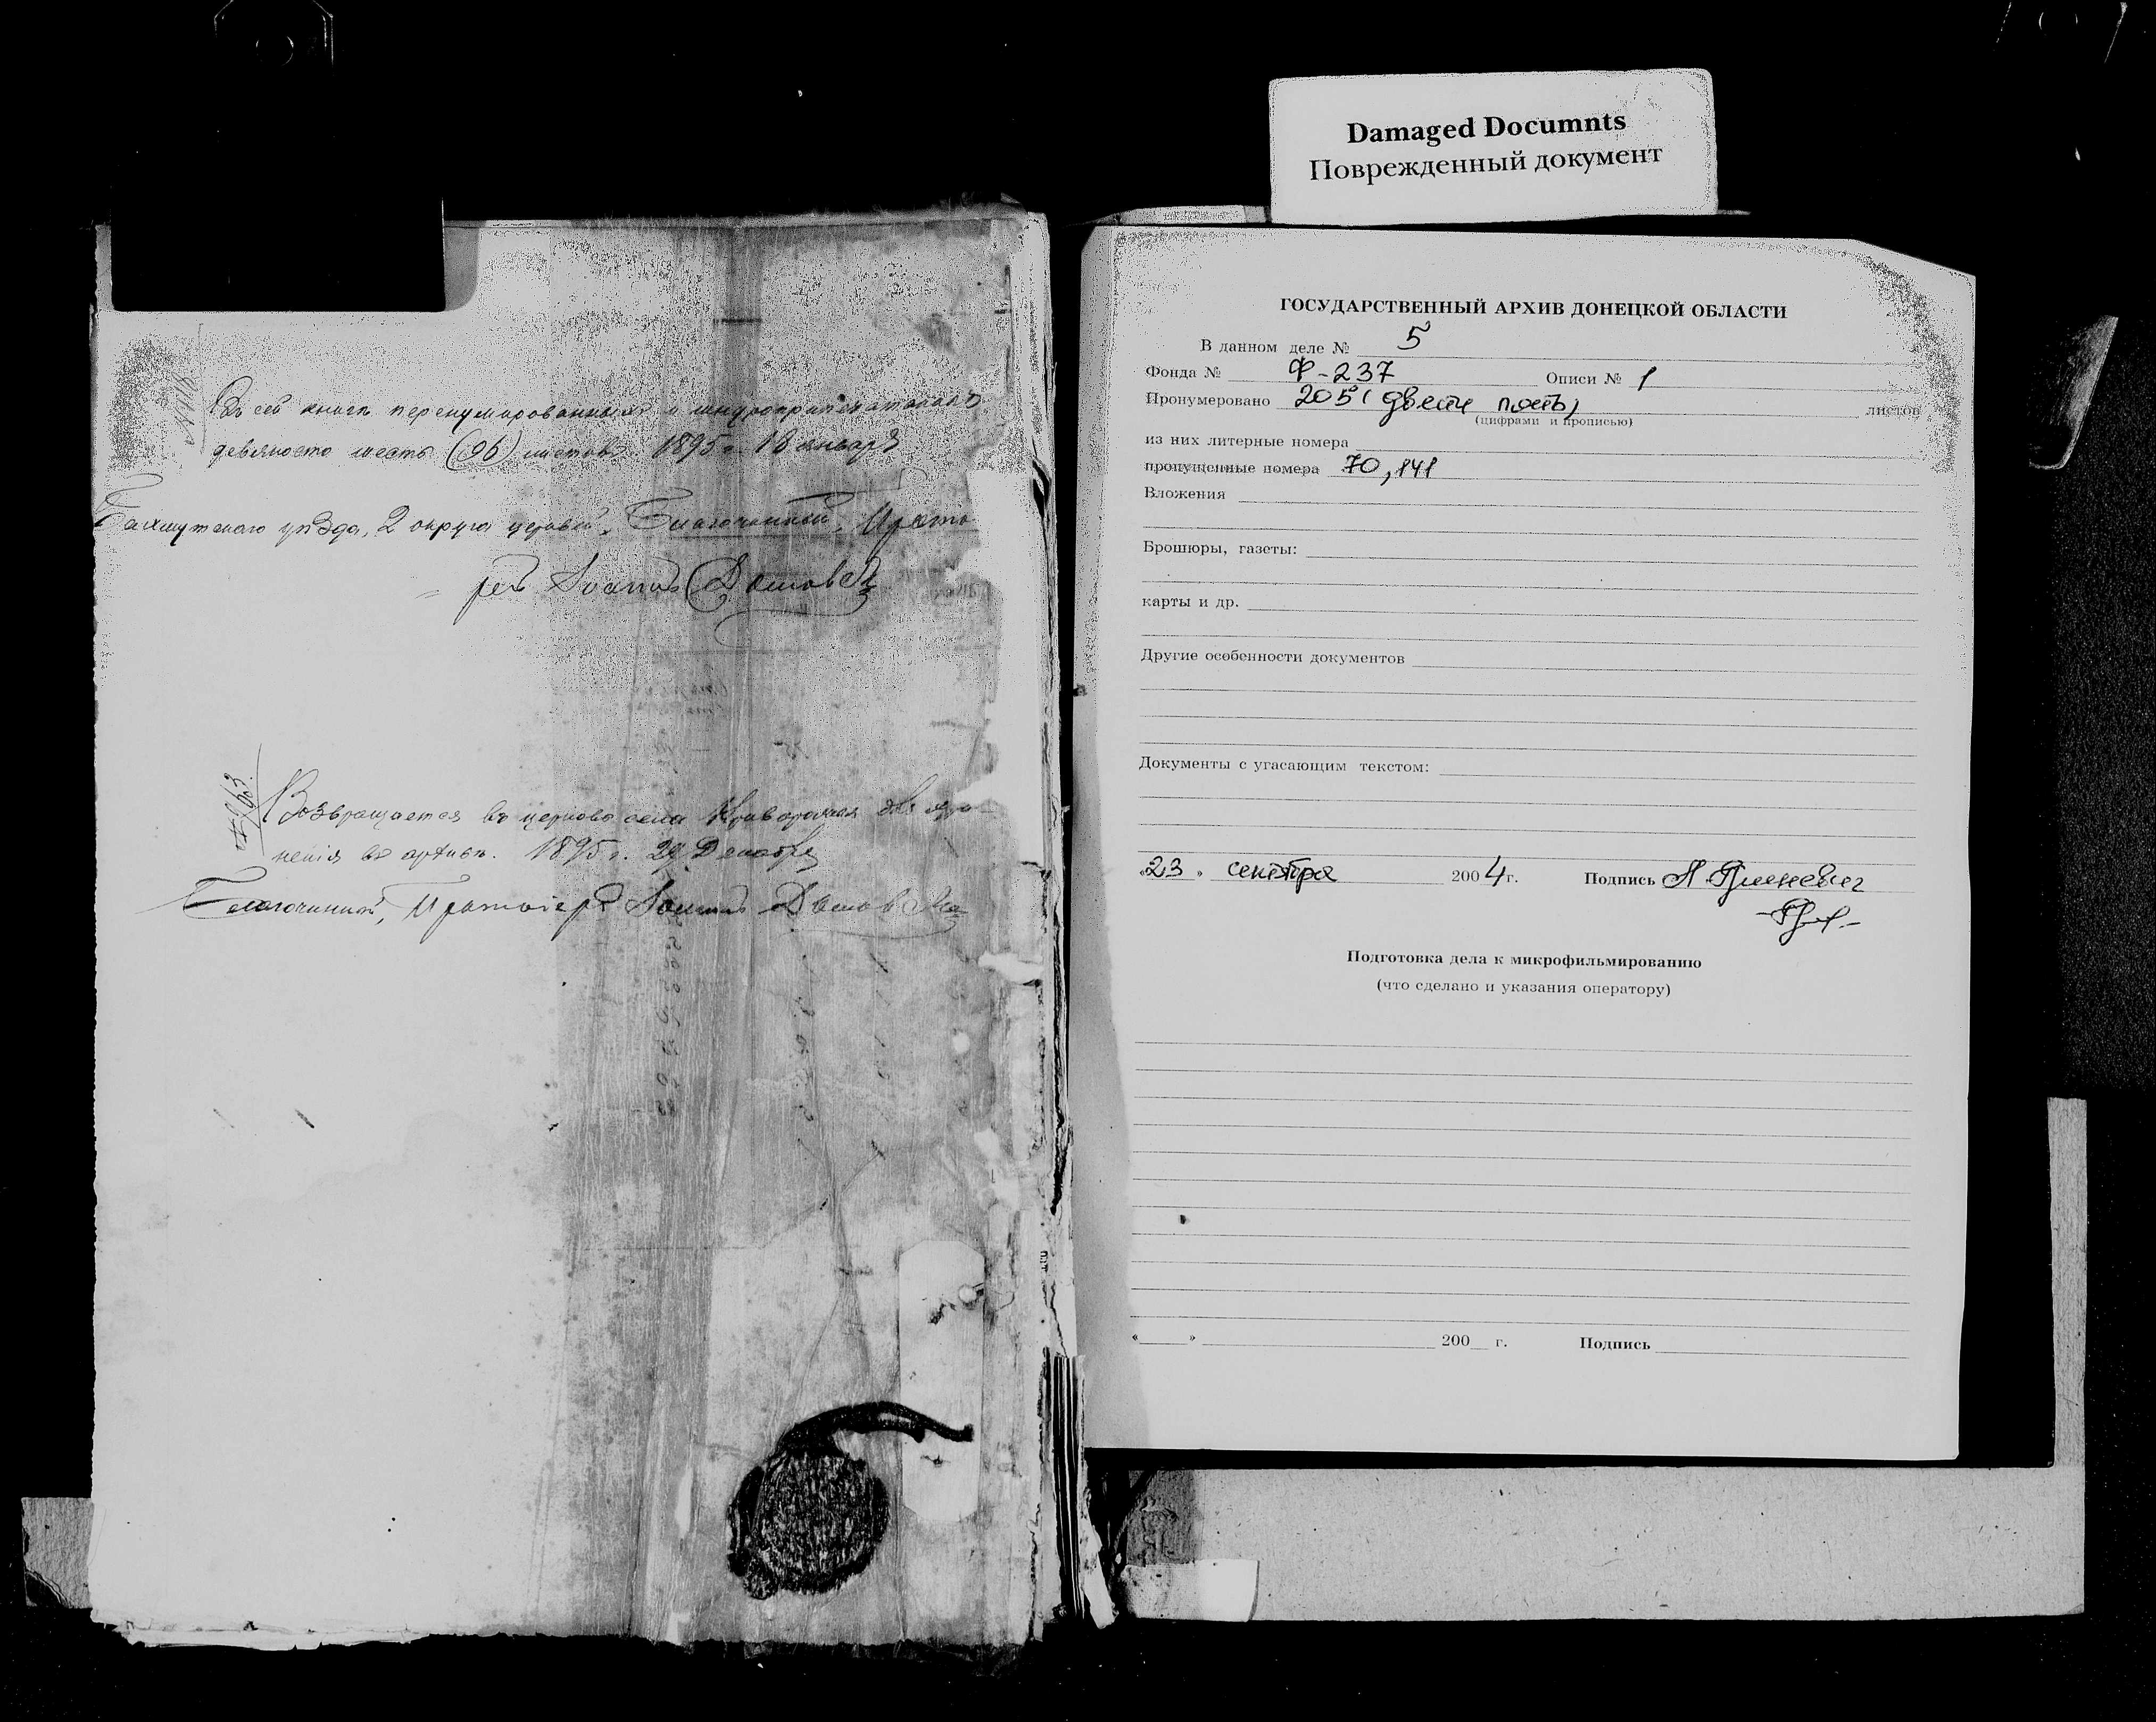 Damaged Documnts
Поврежденный документ
Въ сей книгѣ перенумерованныхъ и шнуроприпечатанныхъ
девяносто шесть (96) листовъ. 1895 г. 18 января
Бахмутскаго уѣзда, 2 округа церквей, Благочинный, Прото
рей Іоаннъ
Возвращается въ церковь села для хра
ненія въ архивѣ. 1895 г. 29 Декабря
Благочинный, Протоіерей Іоаннъ
ГОСУДАРСТВЕННЫЙ АРХИВ ДОНЕЦКОЙ ОБЛАСТИ
В данном деле № 5
Фонда № Ф-237 Описи № 1
Пронумеровано 205 (двести пять) листов
(цифрами и прописью)
из них литерные номера
пропущенные номера 70, 141
Вложения
Брошюры, газеты:
карты и др.
Другие особенности документов
Документы с угасающим текстом:
«23» сентября 2004 г. Подпись
Подготовка дела к микрофильмированию
(что сделано и указания оператору)
« » 200 г. Подпись